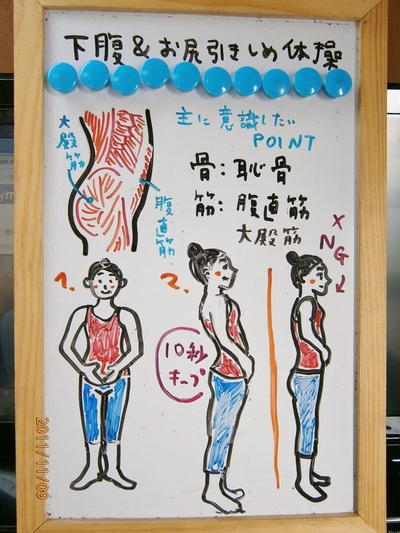 下腹&お尻引きしめ体操
大殿筋
腹直筋
主に意識したい
POINT
骨:恥骨
筋:腹直筋
大殿筋
1.
2.
10秒
キープ
×
NG
2011/11/09